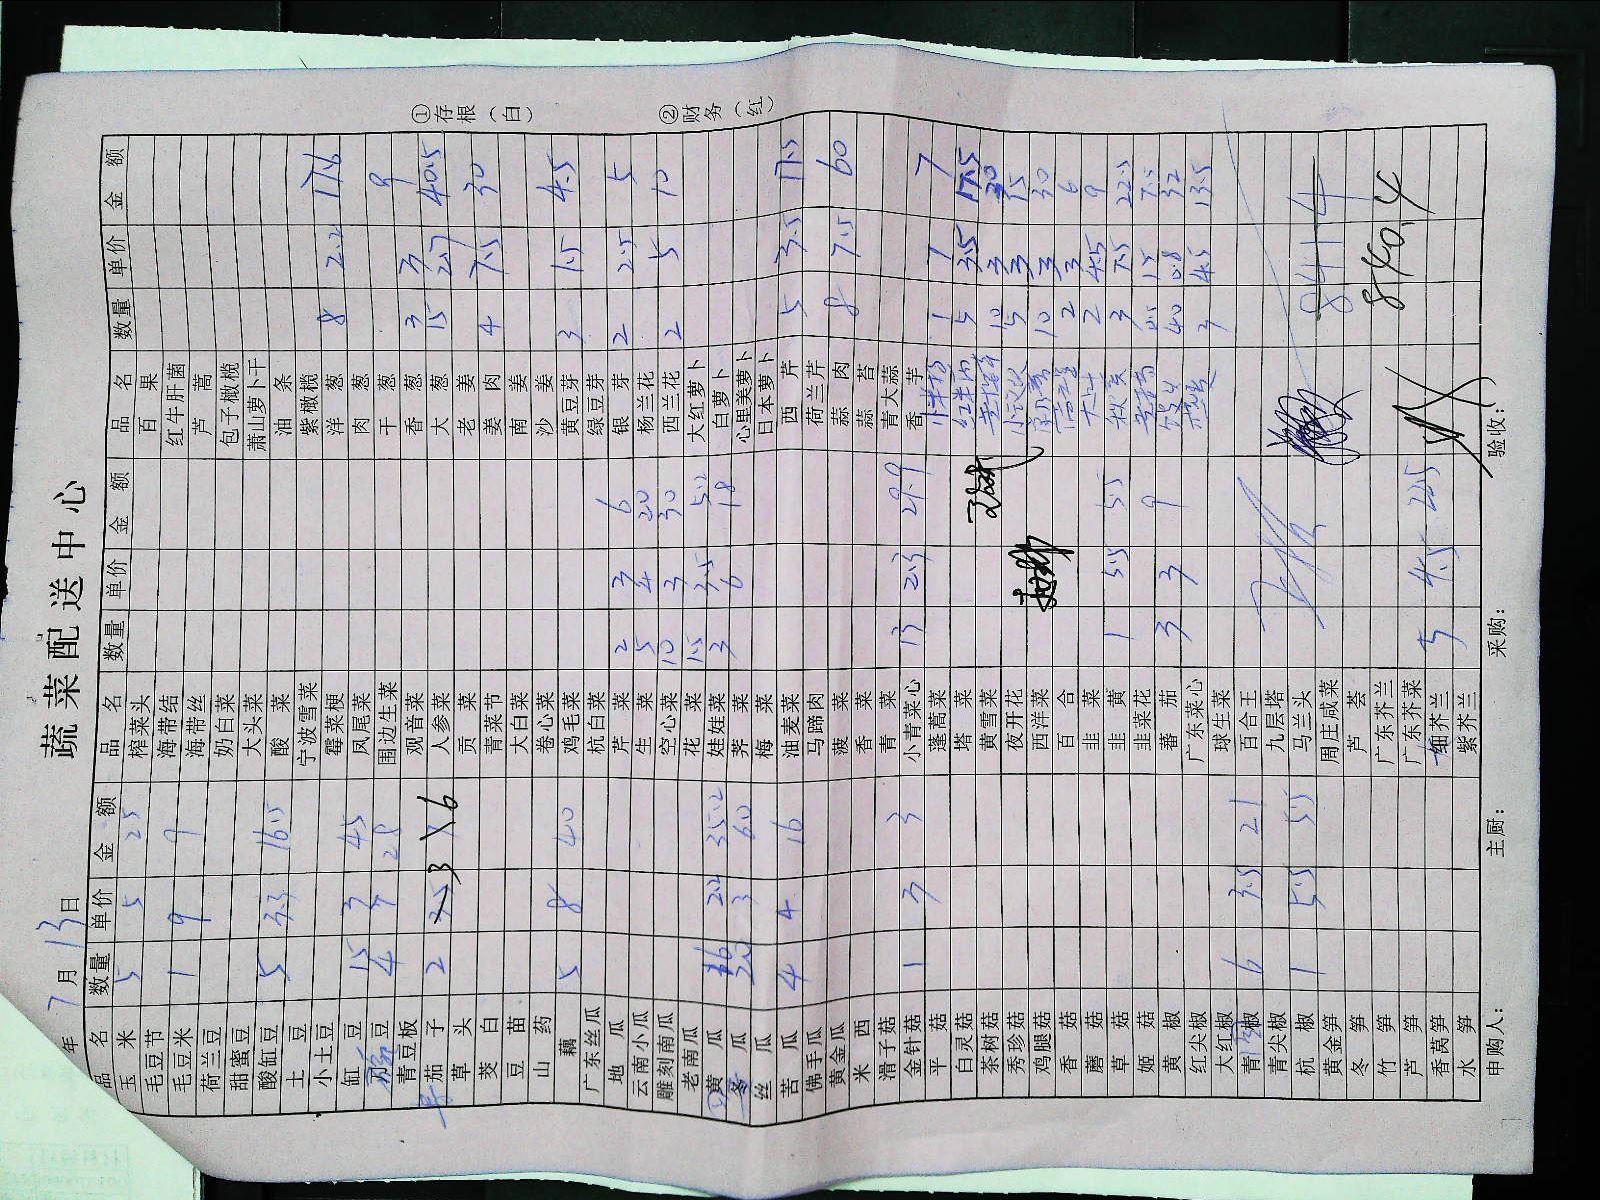 蔬菜配送中心
年 7 月 13 日
①存根（白）
②财务（红）
品名 数量 单价 金额 品名 数量 单价 金额 品名 数量 单价 金额
玉米 5 5 25 榨菜头 百果
毛豆节 海带结 红牛肝菌
毛豆米 1 9 9 海带丝 芦蒿
荷兰豆 奶白菜 包子橄榄
甜蜜豆 大头菜 萧山萝卜干
酸缸豆 5 3.3 16.5 酸菜 油条
土豆 宁波雪菜 紫橄榄
小土豆 霉菜梗 洋葱 8 2.2 17.6
缸豆 15 3 45 凤尾菜 肉葱
豆 4 7 28 围边生菜 干葱 9
青豆板 观音菜 香葱 3 3
茄子 2 3 6 人参菜 大葱 15 2.7 40.5
草头 贡菜 老姜 4 7.5 30
茭白 青菜节 姜肉
豆苗 大白菜 南姜
山药 卷心菜 沙姜
藕 5 8 40 鸡毛菜 黄豆芽 3 1.5 4.5
广东丝瓜 杭白菜 绿豆芽
地瓜 芹菜 2 3 6 银芽 2 2.5 5
云南小瓜 生菜 5 4 20 杨兰花
雕刻南瓜 空心菜 10 3 30 西兰花 2 5 10
老南瓜 花菜 15 3.5 52 大红萝卜
黄瓜 16 2.2 35.2 娃娃菜 3 6 18 白萝卜
冬瓜 20 3 60 荠菜 心里美萝卜
丝瓜 梅菜 日本萝卜
苦瓜 4 4 16 油麦菜 西芹 5 3.5 17.5
佛手瓜 马蹄肉 荷兰芹
黄金瓜 菠菜 蒜肉 8 7.5 60
米西 香菜 蒜苔
滑子菇 青菜 青大蒜
金针菇 1 3 3 小青菜心 13 2.3 29.9 香芋
平菇 蓬蒿菜 1 7 7
白灵菇 塔菜 5 3.5 17.5
茶树菇 黄雪菜 10 3 30
秀珍菇 夜开花 5 3 15
鸡腿菇 西洋菜 10 3 30
香菇 百合 2 3 6
蘑菇 韭菜 2 4.5 9
草菇 韭黄 1 5.5 5.5 3 7.5 22.5
姬菇 韭菜花 7.5
黄椒 蕃茄 3 3 9 40 0.8 32
红尖椒 广东菜心 3 4.5 13.5
大红椒 球生菜
青椒 6 3.5 21 百合王
青尖椒 九层塔
杭椒 1 5.5 5.5 马兰头 8414
黄金笋 周庄咸菜
冬笋 芦荟 840.4
竹笋 广东芥兰
芦笋 广东芥菜
香莴笋 细芥兰 5 4.5 22.5
水笋 紫芥兰
申购人： 主厨： 采购： 验收：